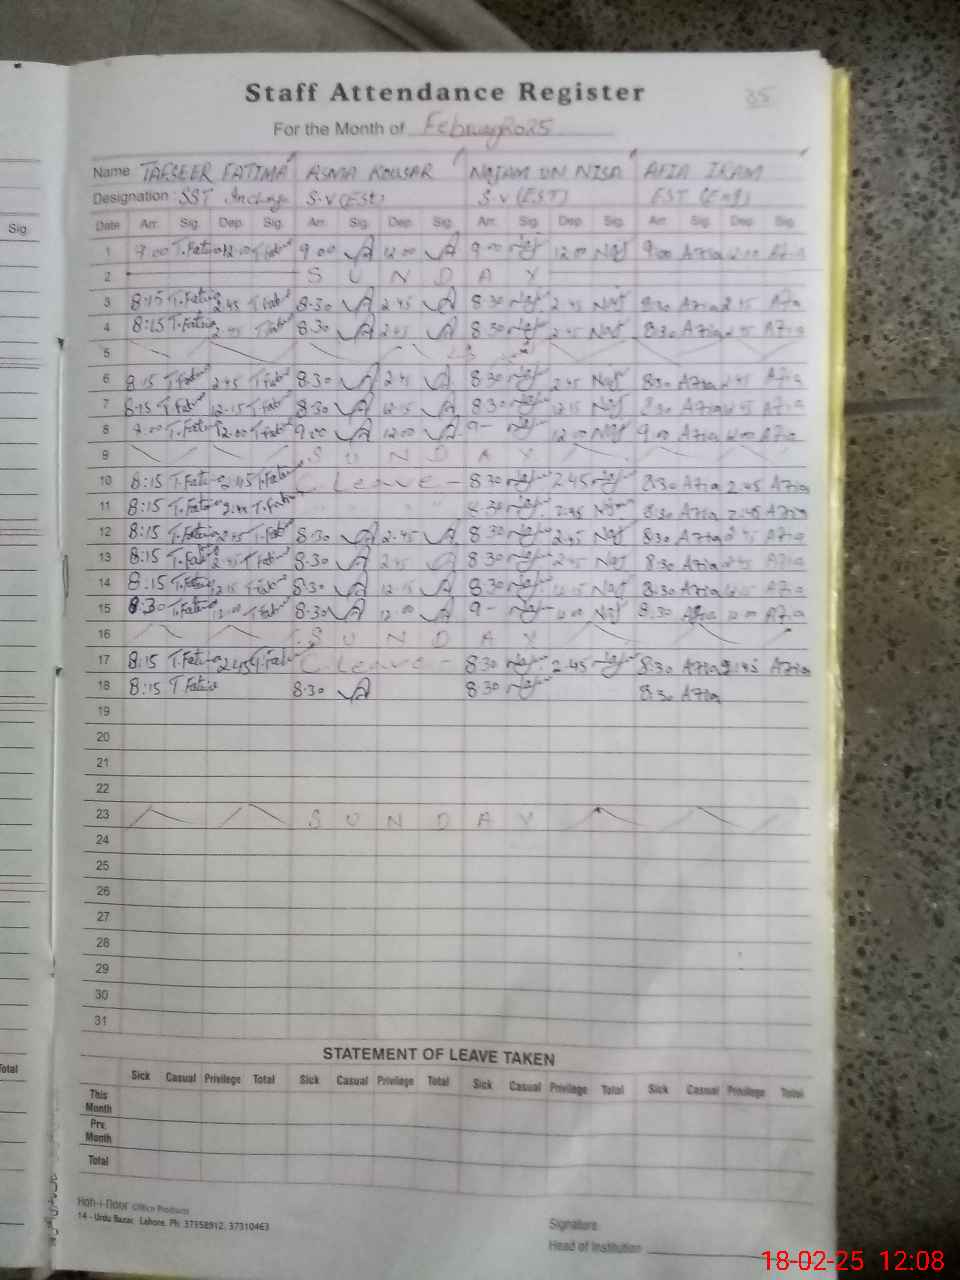 Staff Attendance Register
35
For the Month of February 2025
Name TAFSEER FATIMA ASMA KOUSAR NAJAM UN NISA AFIA IKRAM
Designation SST Incharge S.V (EST) S.V (EST) EST (Eng)
Sig.
Date Arr. Sig. Dep. Sig. Arr. Sig. Dep. Sig. Arr. Sig. Dep. Sig. Arr. Sig. Dep. Sig.
1 9.00 T.Fatima 12.00 T.Fatima 9.00 12.00 9.00 Naj 12.00 Naj 9.00 12.00
2 SUNDAY
3 8:15 T.Fatima 2.45 T.Fatima 8.30 2.45 8.30 Naj 2.45 Naj 8.30 2.45
4 8:15 T.Fatima 2.45 T.Fatima 8.30 2.45 8.30 Naj 2.45 Naj 8.30 2.45
5
6 8:15 T.Fatima 2.45 T.Fatima 8.30 2.45 8.30 Naj 2.45 Naj 8.30 2.45
7 8.15 T.Fatima 12.15 T.Fatima 8.30 12.15 8.30 Naj 12.15 Naj 8.30 12.15
8 9.00 T.Fatima 12.00 T.Fatima 9.00 12.00 9- Naj 12.00 Naj 9.00 12.00
9 SUNDAY
10 8:15 T.Fatima 2.45 T.Fatima C. Leave - 8.30 Naj 2.45 Naj 8.30 2.45
11 8:15 T.Fatima 2.45 T.Fatima 8.30 Naj 2.45 Naj 8.30 2.45
12 8:15 T.Fatima 2.45 T.Fatima 8.30 2.45 8.30 Naj 2.45 Naj 8.30 2.45
13 8:15 T.Fatima 2.45 T.Fatima 8.30 2.45 8.30 Naj 2.45 Naj 8.30 2.45
14 8:15 T.Fatima 12.15 T.Fatima 8.30 12.15 8.30 Naj 12.15 Naj 8.30 12.15
15 8.30 T.Fatima 12.00 T.Fatima 8.30 12.00 9- Naj 12.00 Naj 8.30 12.00
16 SUNDAY
17 8:15 T.Fatima 2.45 T.Fatima C. Leave - 8.30 Naj 2.45 Naj 8.30 2.45
18 8:15 T.Fatima 8.30 8.30 Naj 8.30
19
20
21
22
23 SUNDAY
24
25
26
27
28
29
30
31
STATEMENT OF LEAVE TAKEN
Total
Sick Casual Privilege Total Sick Casual Privilege Total Sick Casual Privilege Total Sick Casual Privilege Total
This Month
Prv. Month
Total
Koh-i-Noor Office Products
14 - Urdu Bazar, Lahore. Ph: 37358912, 37310463
Signature
Head of Institution
18-02-25 12:08